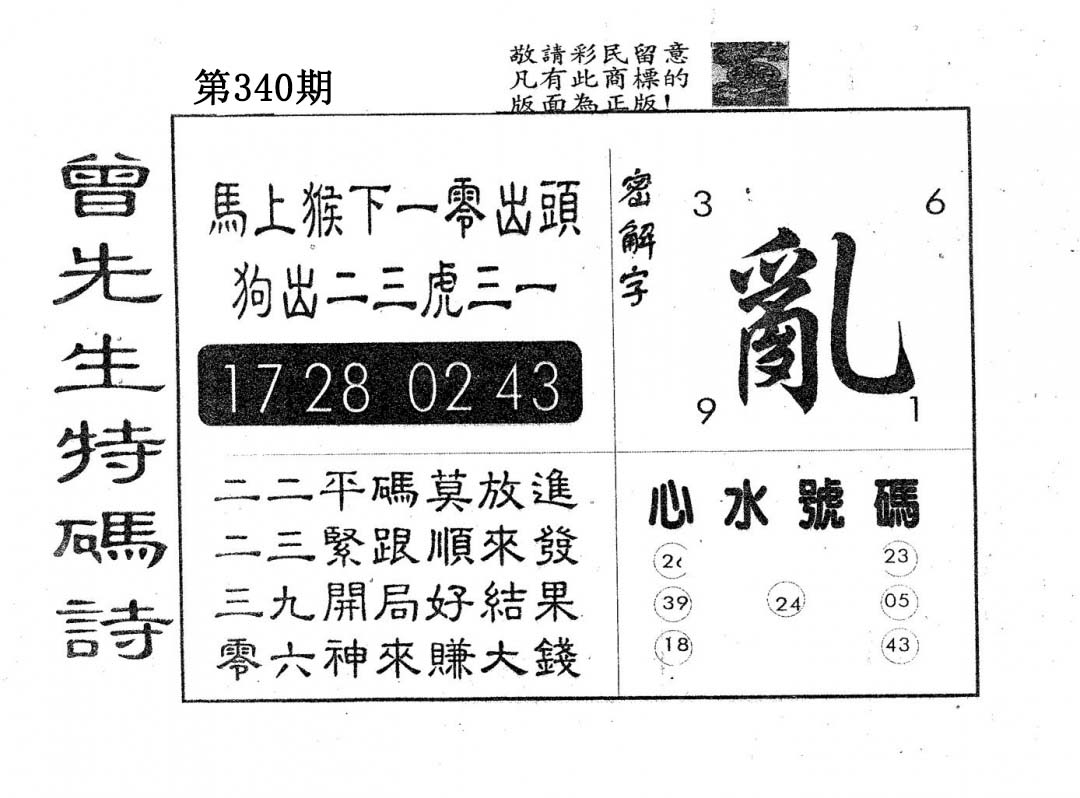 第340期
敬請彩民留意
凡有此商標的
版面為正版!
曾先生特碼詩
馬上猴下一零出頭
狗出二三虎三一
17 28 02 43
密解字
3 6
亂
9 1
二二平碼莫放進
二三緊跟順來發
三九開局好結果
零六神來賺大錢
心水號碼
26 23
39 24 05
18 43